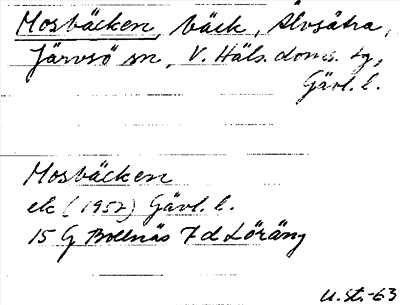 Mosbäcken, bäck, Älvsätra,
Järvsö sn, V. Häls. doms. tg,
Gävl. l.
Mosbäcken
ek (1952) Gävl. l.
15 G Bollnäs 7 d Löräng
U. St. -63